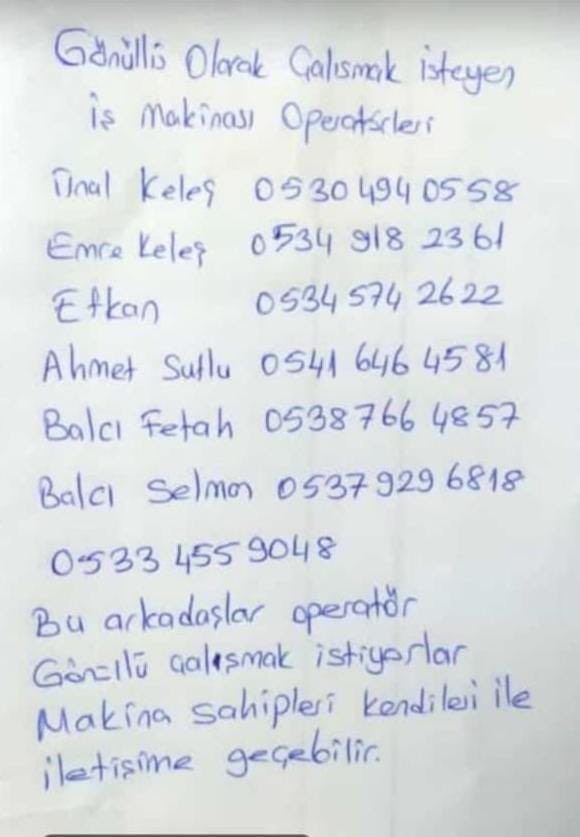 Gönüllü Olarak Çalışmak isteyen
iş Makinası Operatörleri
Ünal Keleş 0530 494 0558
Emre Keleş 0534 918 2361
Efkan 0534 574 2622
Ahmet Sutlu 0541 646 4581
Balcı Fetah 0538 766 4857
Balcı Selman 0537 929 6818
0533 455 9048
Bu arkadaşlar operatör
Gönüllü çalışmak istiyorlar
Makina sahipleri kendileri ile
iletişime geçebilir.